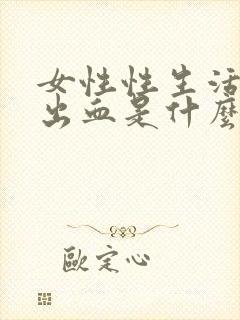 女性性生活
出血是什麼
歐定心